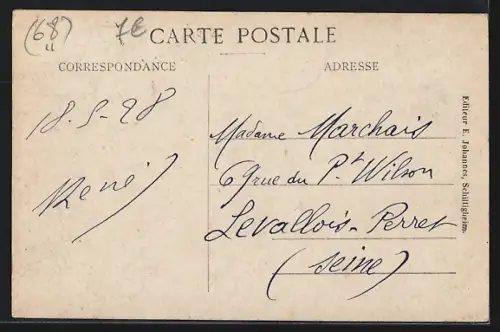 (68)
7€
CARTE POSTALE
CORRESPONDANCE
ADRESSE
18.5-28
René
Madame Marchais
69 rue du Pt Wilson
Levallois-Perret
(Seine)
Editeur E. Johannes, Schiltigheim.